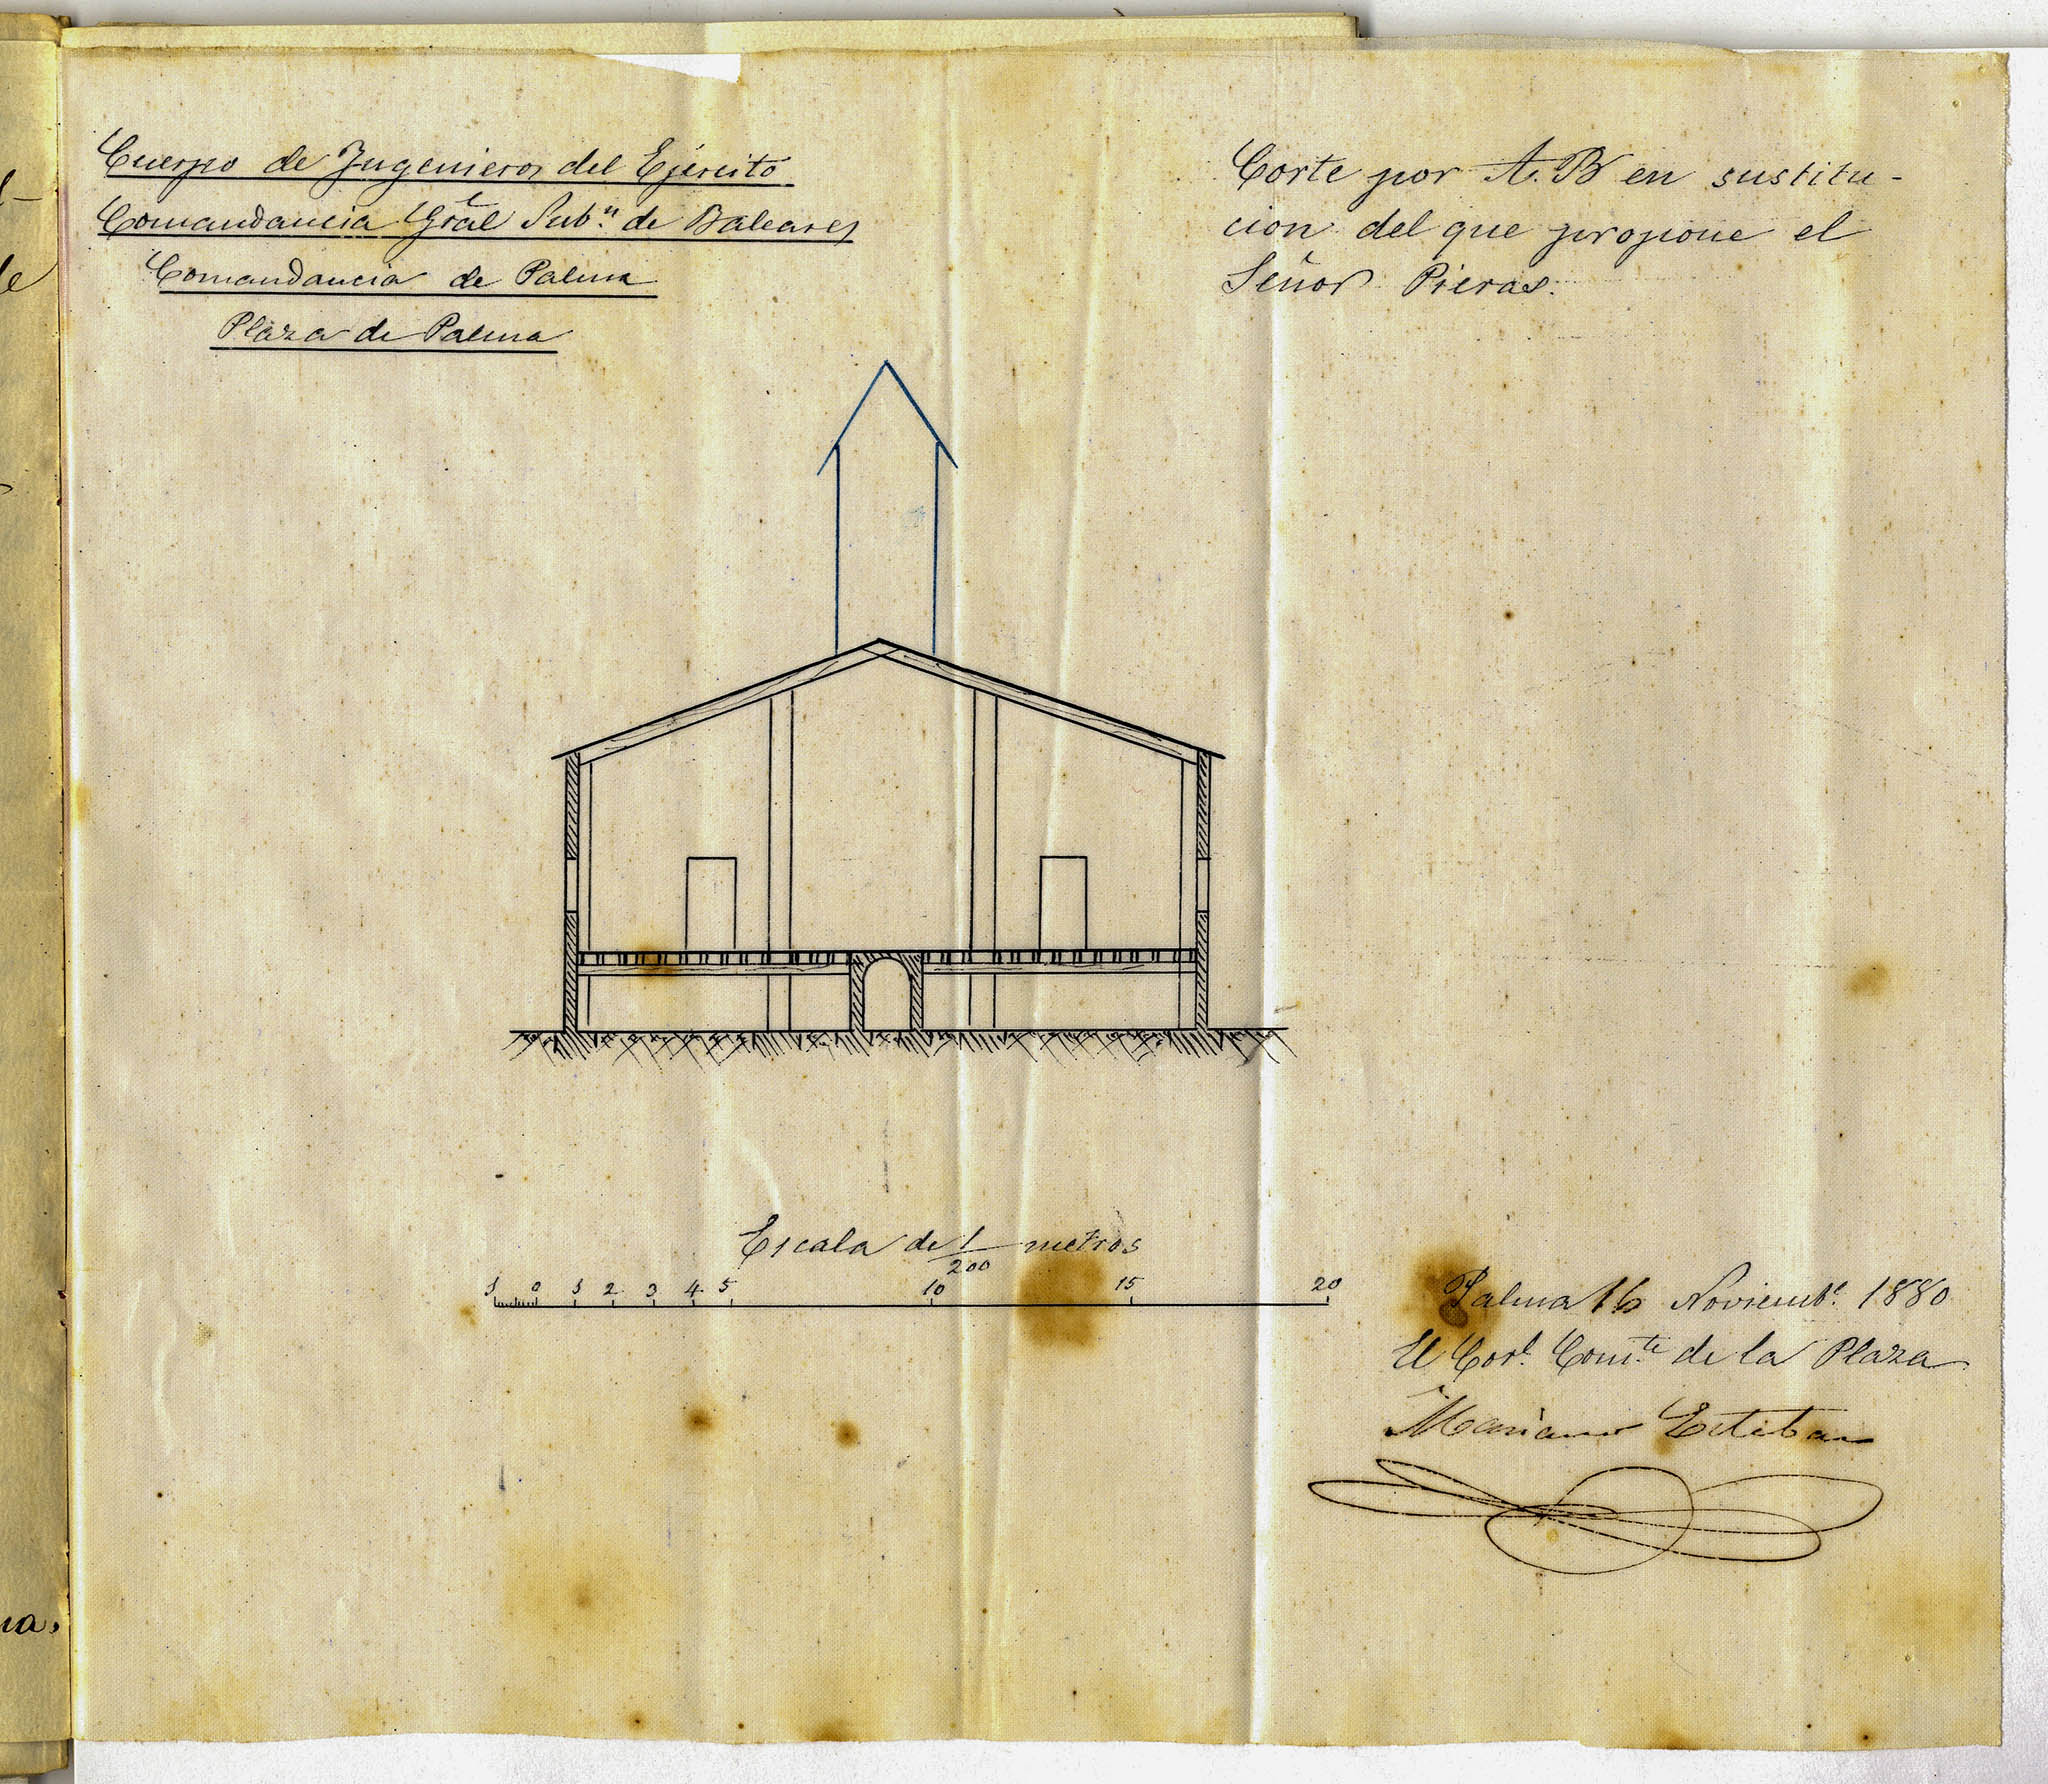 Cuerpo de Ingenieros del Ejército
Comandancia Gral Subn de Baleares
Comandancia de Palma
Plaza de Palma
Corte por A.B en sustitu-
cion del que propone el
Señor Pieras.
Escala de 1/200 metros
1 0 1 2 3 4 5 10 15 20
Palma 16 Noviembe. 1880
El Corl. Comte de la Plaza
Mariano Esteban
na.